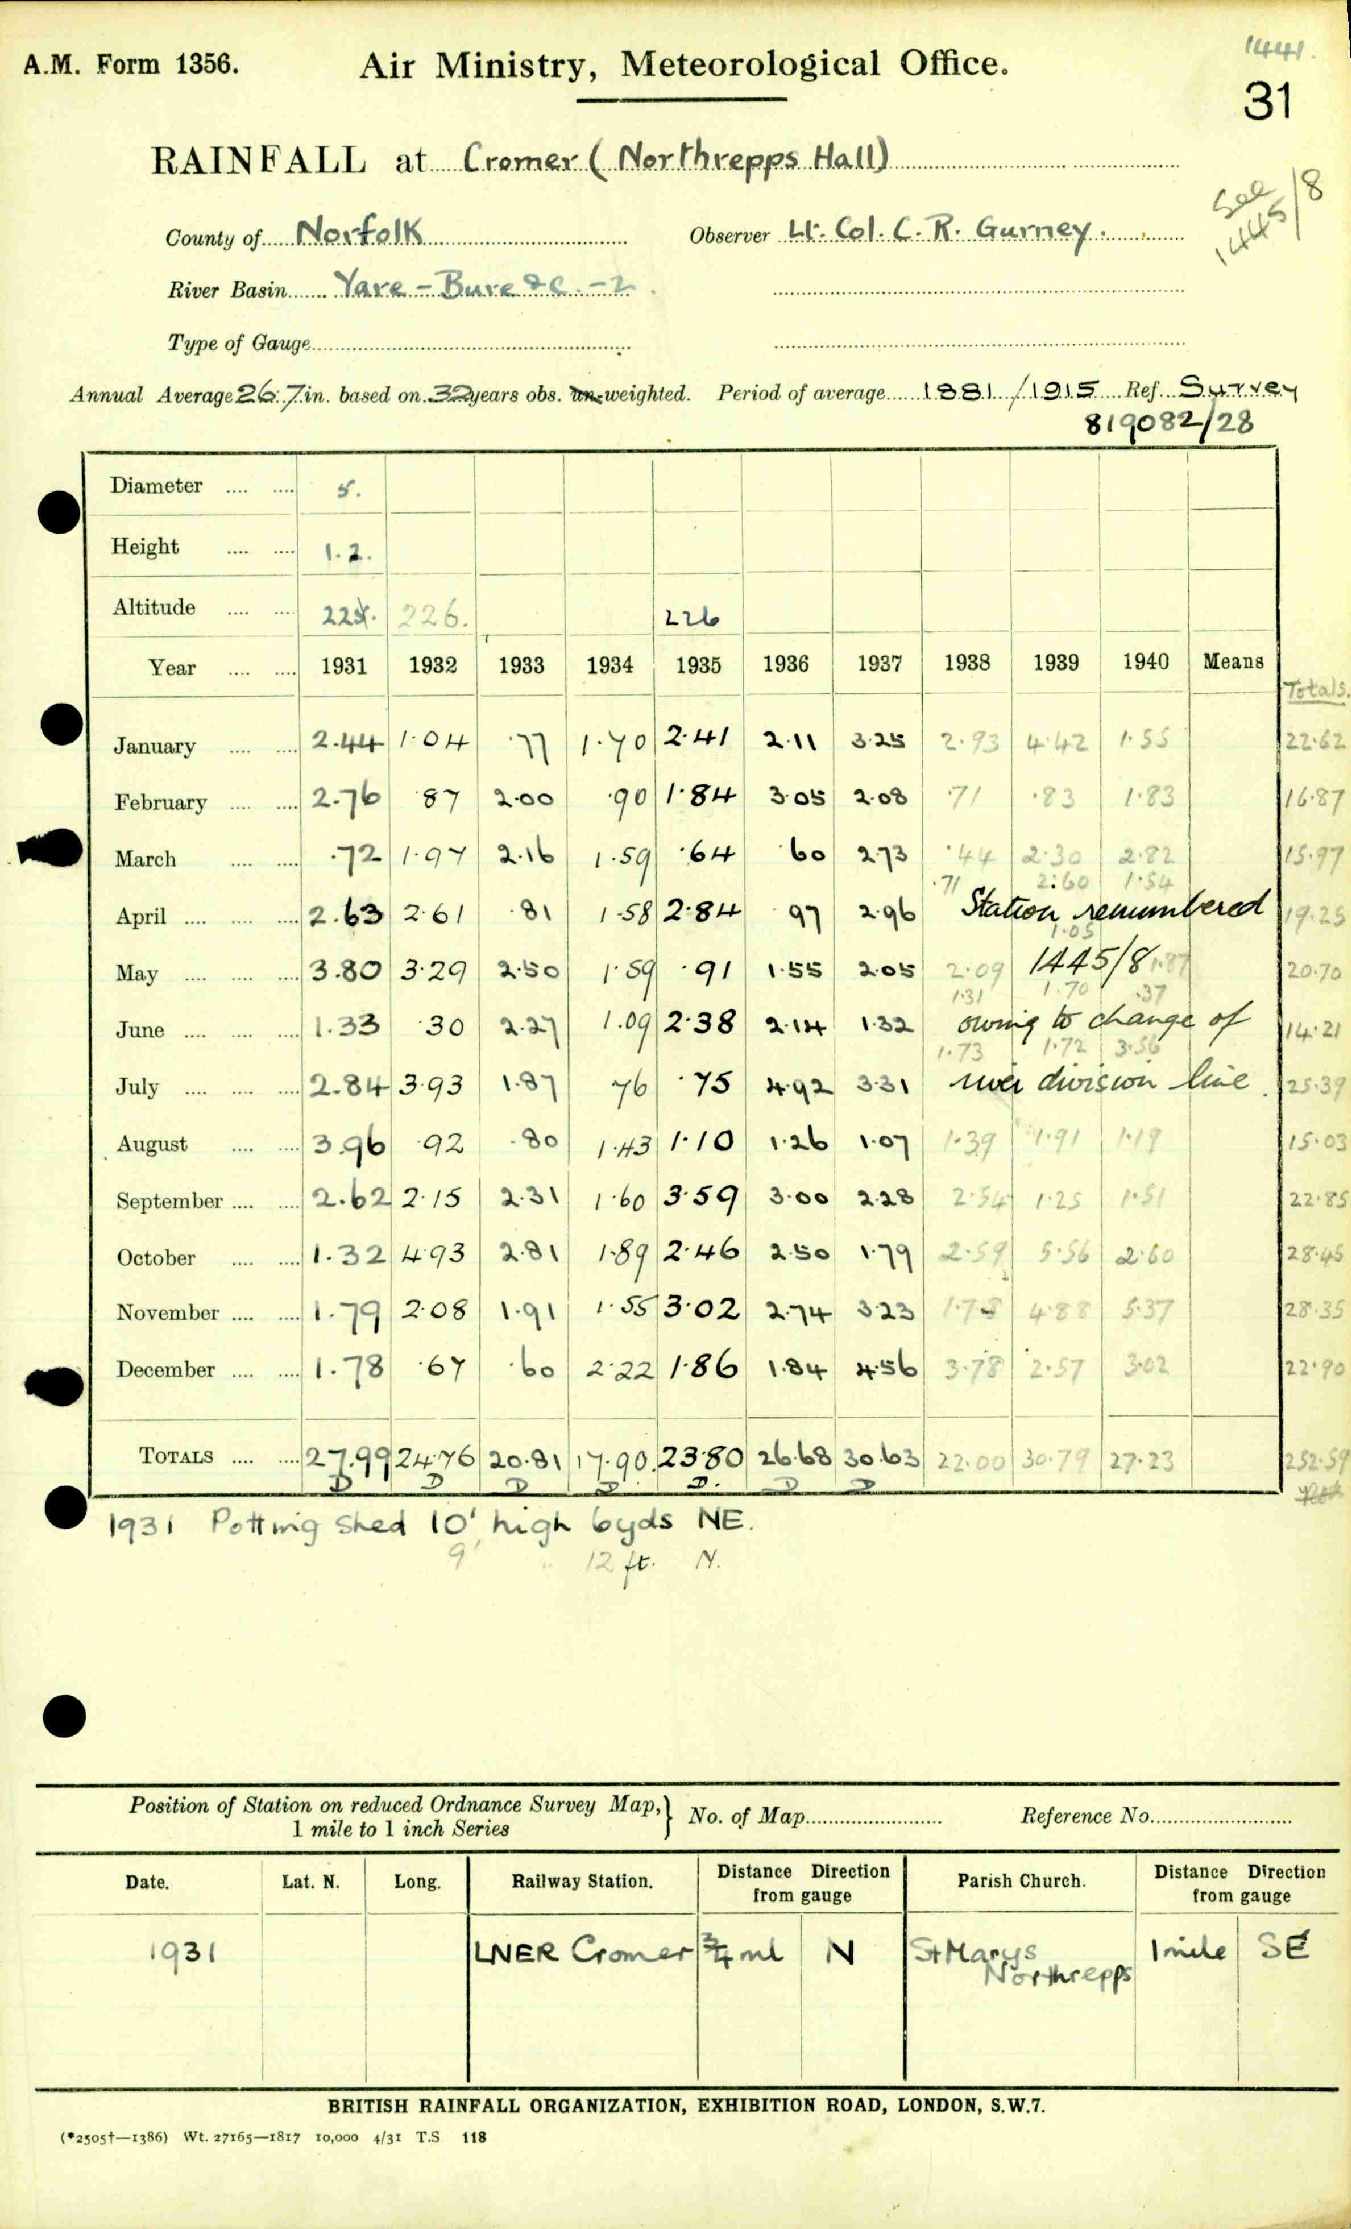 1441.
A.M. Form 1356. Air Ministry, Meteorological Office.
31
RAINFALL at Cromer (Northrepps Hall)
See 1445/8
County of Norfolk Observer Lt. Col. C. R. Gurney.
River Basin Yare - Bure &c. - 2.
Type of Gauge
Annual Average 26.7 in. based on 32 years obs. un-weighted. Period of average 1881/1915 Ref. Survey
819082/28
Diameter .... .... 5.
Height .... .... 1.2.
Altitude .... .... 225. 226. 226
Year .... .... 1931 1932 1933 1934 1935 1936 1937 1938 1939 1940 Means
Totals.
January .... .... 2.44 1.04 .77 1.70 2.41 2.11 3.25 2.93 4.42 1.55 22.62
February .... .... 2.76 .87 2.00 .90 1.84 3.05 2.08 .71 .83 1.83 16.87
March .... .... .72 1.97 2.16 1.59 .64 .60 2.73 .44 2.30 2.82 15.97
.71 2.60 1.54
April .... .... .... 2.63 2.61 .81 1.58 2.84 .97 2.96 Station renumbered 19.25
1.05
May .... .... .... 3.80 3.29 2.50 1.59 .91 1.55 2.05 2.09 1445/8 1.87 20.70
1.31 1.70 .37
June .... .... .... 1.33 .30 2.27 1.09 2.38 2.14 1.32 owing to change of 14.21
1.73 1.72 3.56
July .... .... .... 2.84 3.93 1.87 .76 .75 4.92 3.31 river division line. 25.39
August .... .... 3.96 .92 .80 1.43 1.10 1.26 1.07 1.39 1.91 1.19 15.03
September .... .... 2.62 2.15 2.31 1.60 3.59 3.00 2.28 2.54 1.25 1.51 22.85
October .... .... 1.32 4.93 2.81 1.89 2.46 2.50 1.79 2.59 5.56 2.60 28.45
November .... .... 1.79 2.08 1.91 1.55 3.02 2.74 3.23 1.78 4.88 5.37 28.35
December .... .... 1.78 .67 .60 2.22 1.86 1.84 4.56 3.78 2.57 3.02 22.90
TOTALS .... .... 27.99 24.76 20.81 17.90 23.80 26.68 30.63 22.00 30.79 27.23 252.59
D D D D D. D D
1931 Potting shed 10' high 6yds NE.
9' " 12 ft. N.
Position of Station on reduced Ordnance Survey Map, } No. of Map Reference No.
1 mile to 1 inch Series
Date. Lat. N. Long. Railway Station. Distance Direction from gauge Parish Church. Distance Direction from gauge
1931 LNER Cromer 3/4 ml N St Marys Northrepps 1 mile SE
BRITISH RAINFALL ORGANIZATION, EXHIBITION ROAD, LONDON, S.W.7.
(*2505†—1386) Wt. 27165—1817 10,000 4/31 T.S 118